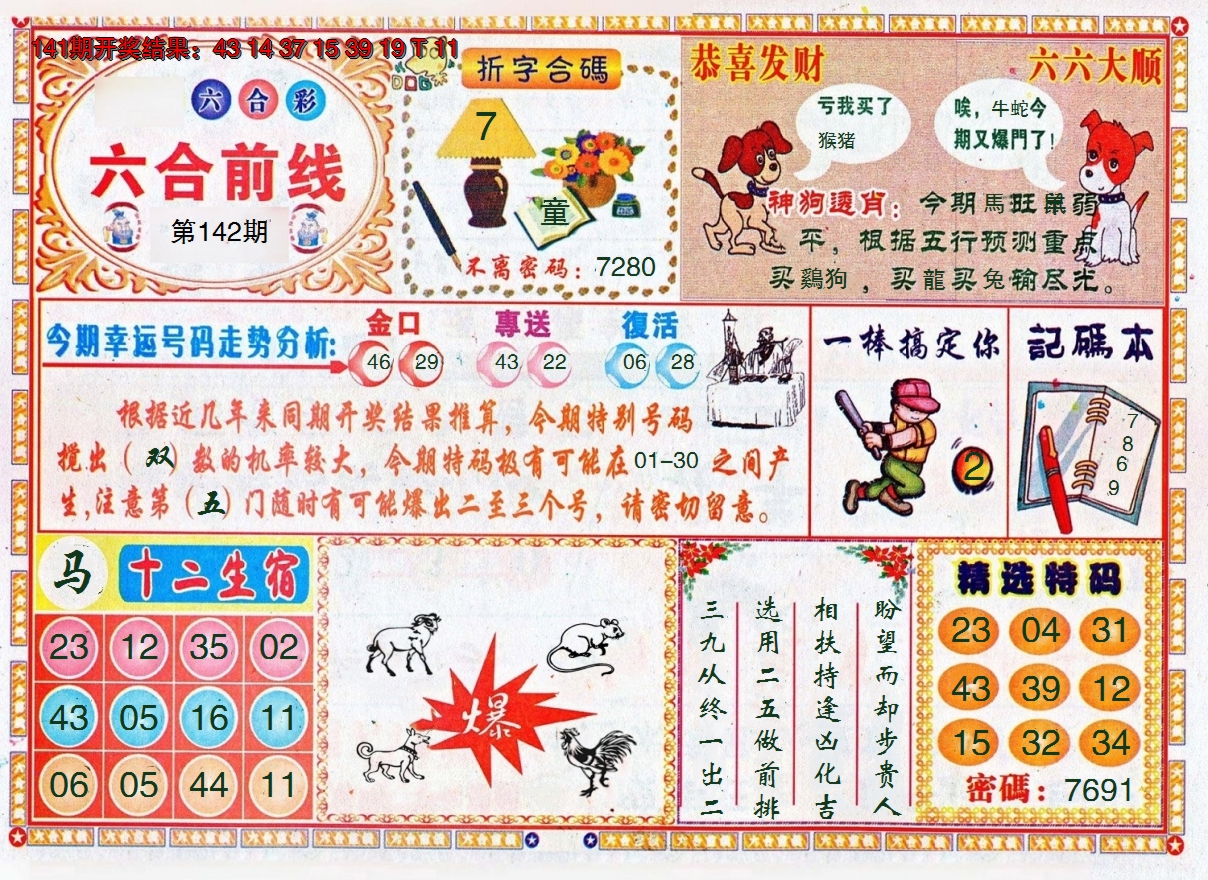 141期开奖结果：43 14 37 15 39 19 T 11
六合彩
六合前线
第142期
DOG
折字合碼
7
童
不离密码：7280
恭喜发财
六六大顺
亏我买了
猴猪
唉，牛蛇今
期又爆門了!
神狗透肖：今期馬旺鼠弱
平，根据五行预测重点
买鷄狗，买龍买兔输尽光。
今期幸运号码走势分析:
金口
46 29
專送
43 22
復活
06 28
根据近几年来同期开奖结果推算，今期特别号码
搅出（双）数的机率较大，今期特码极有可能在01-30之间产
生,注意第（五）门随时有可能爆出二至三个号，请密切留意。
一棒搞定你
2
記碼本
7
8
6
9
马
十二生宿
23 12 35 02
43 05 16 11
06 05 44 11
爆
盼望而却步贵人
相扶持逢凶化吉
选用二五做前排
三九从终一出二
精选特码
23 04 31
43 39 12
15 32 34
密碼：7691